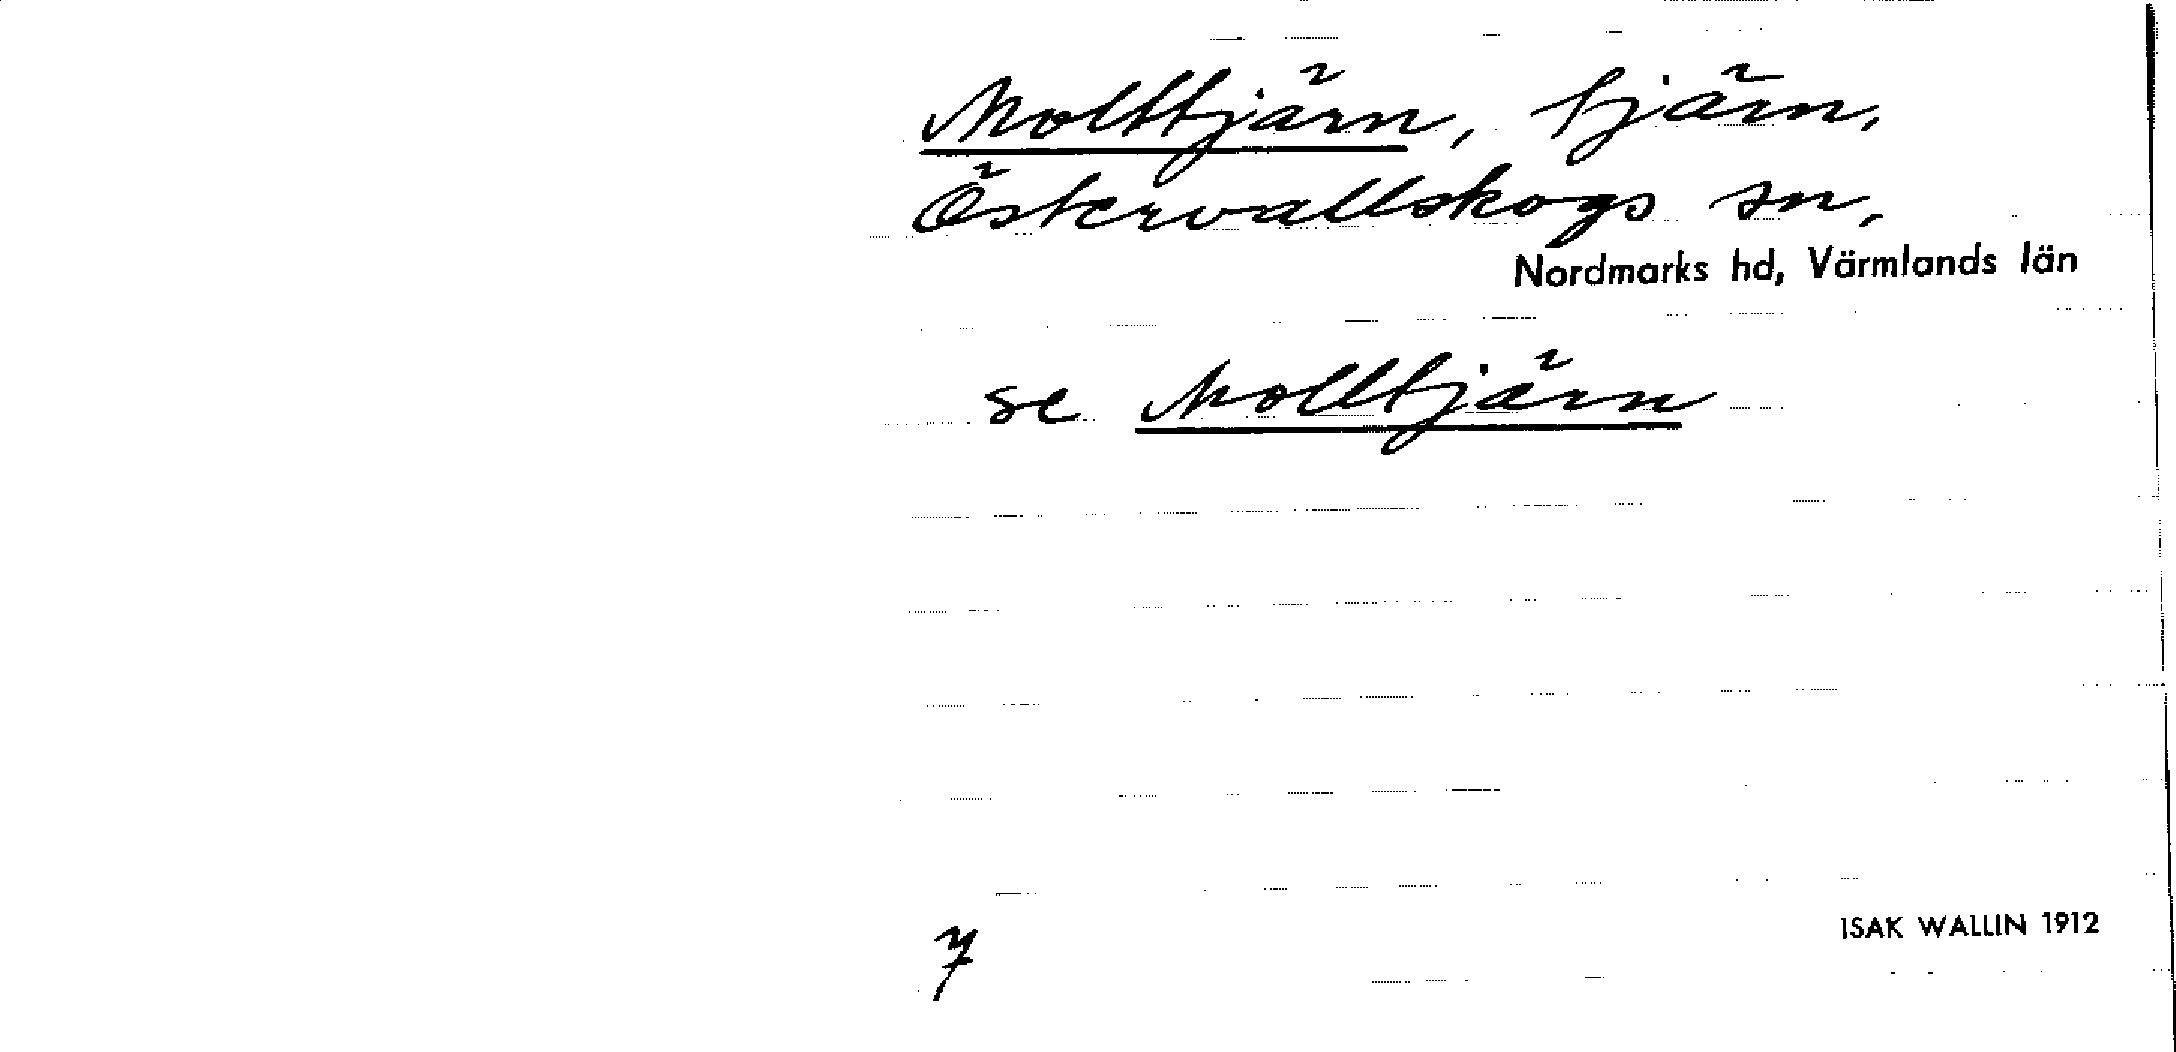 Molttjärn, tjärn,
Östervallskogs sn,
Nordmarks hd, Värmlands län
se Molltjärn
7
ISAK WALLIN 1912